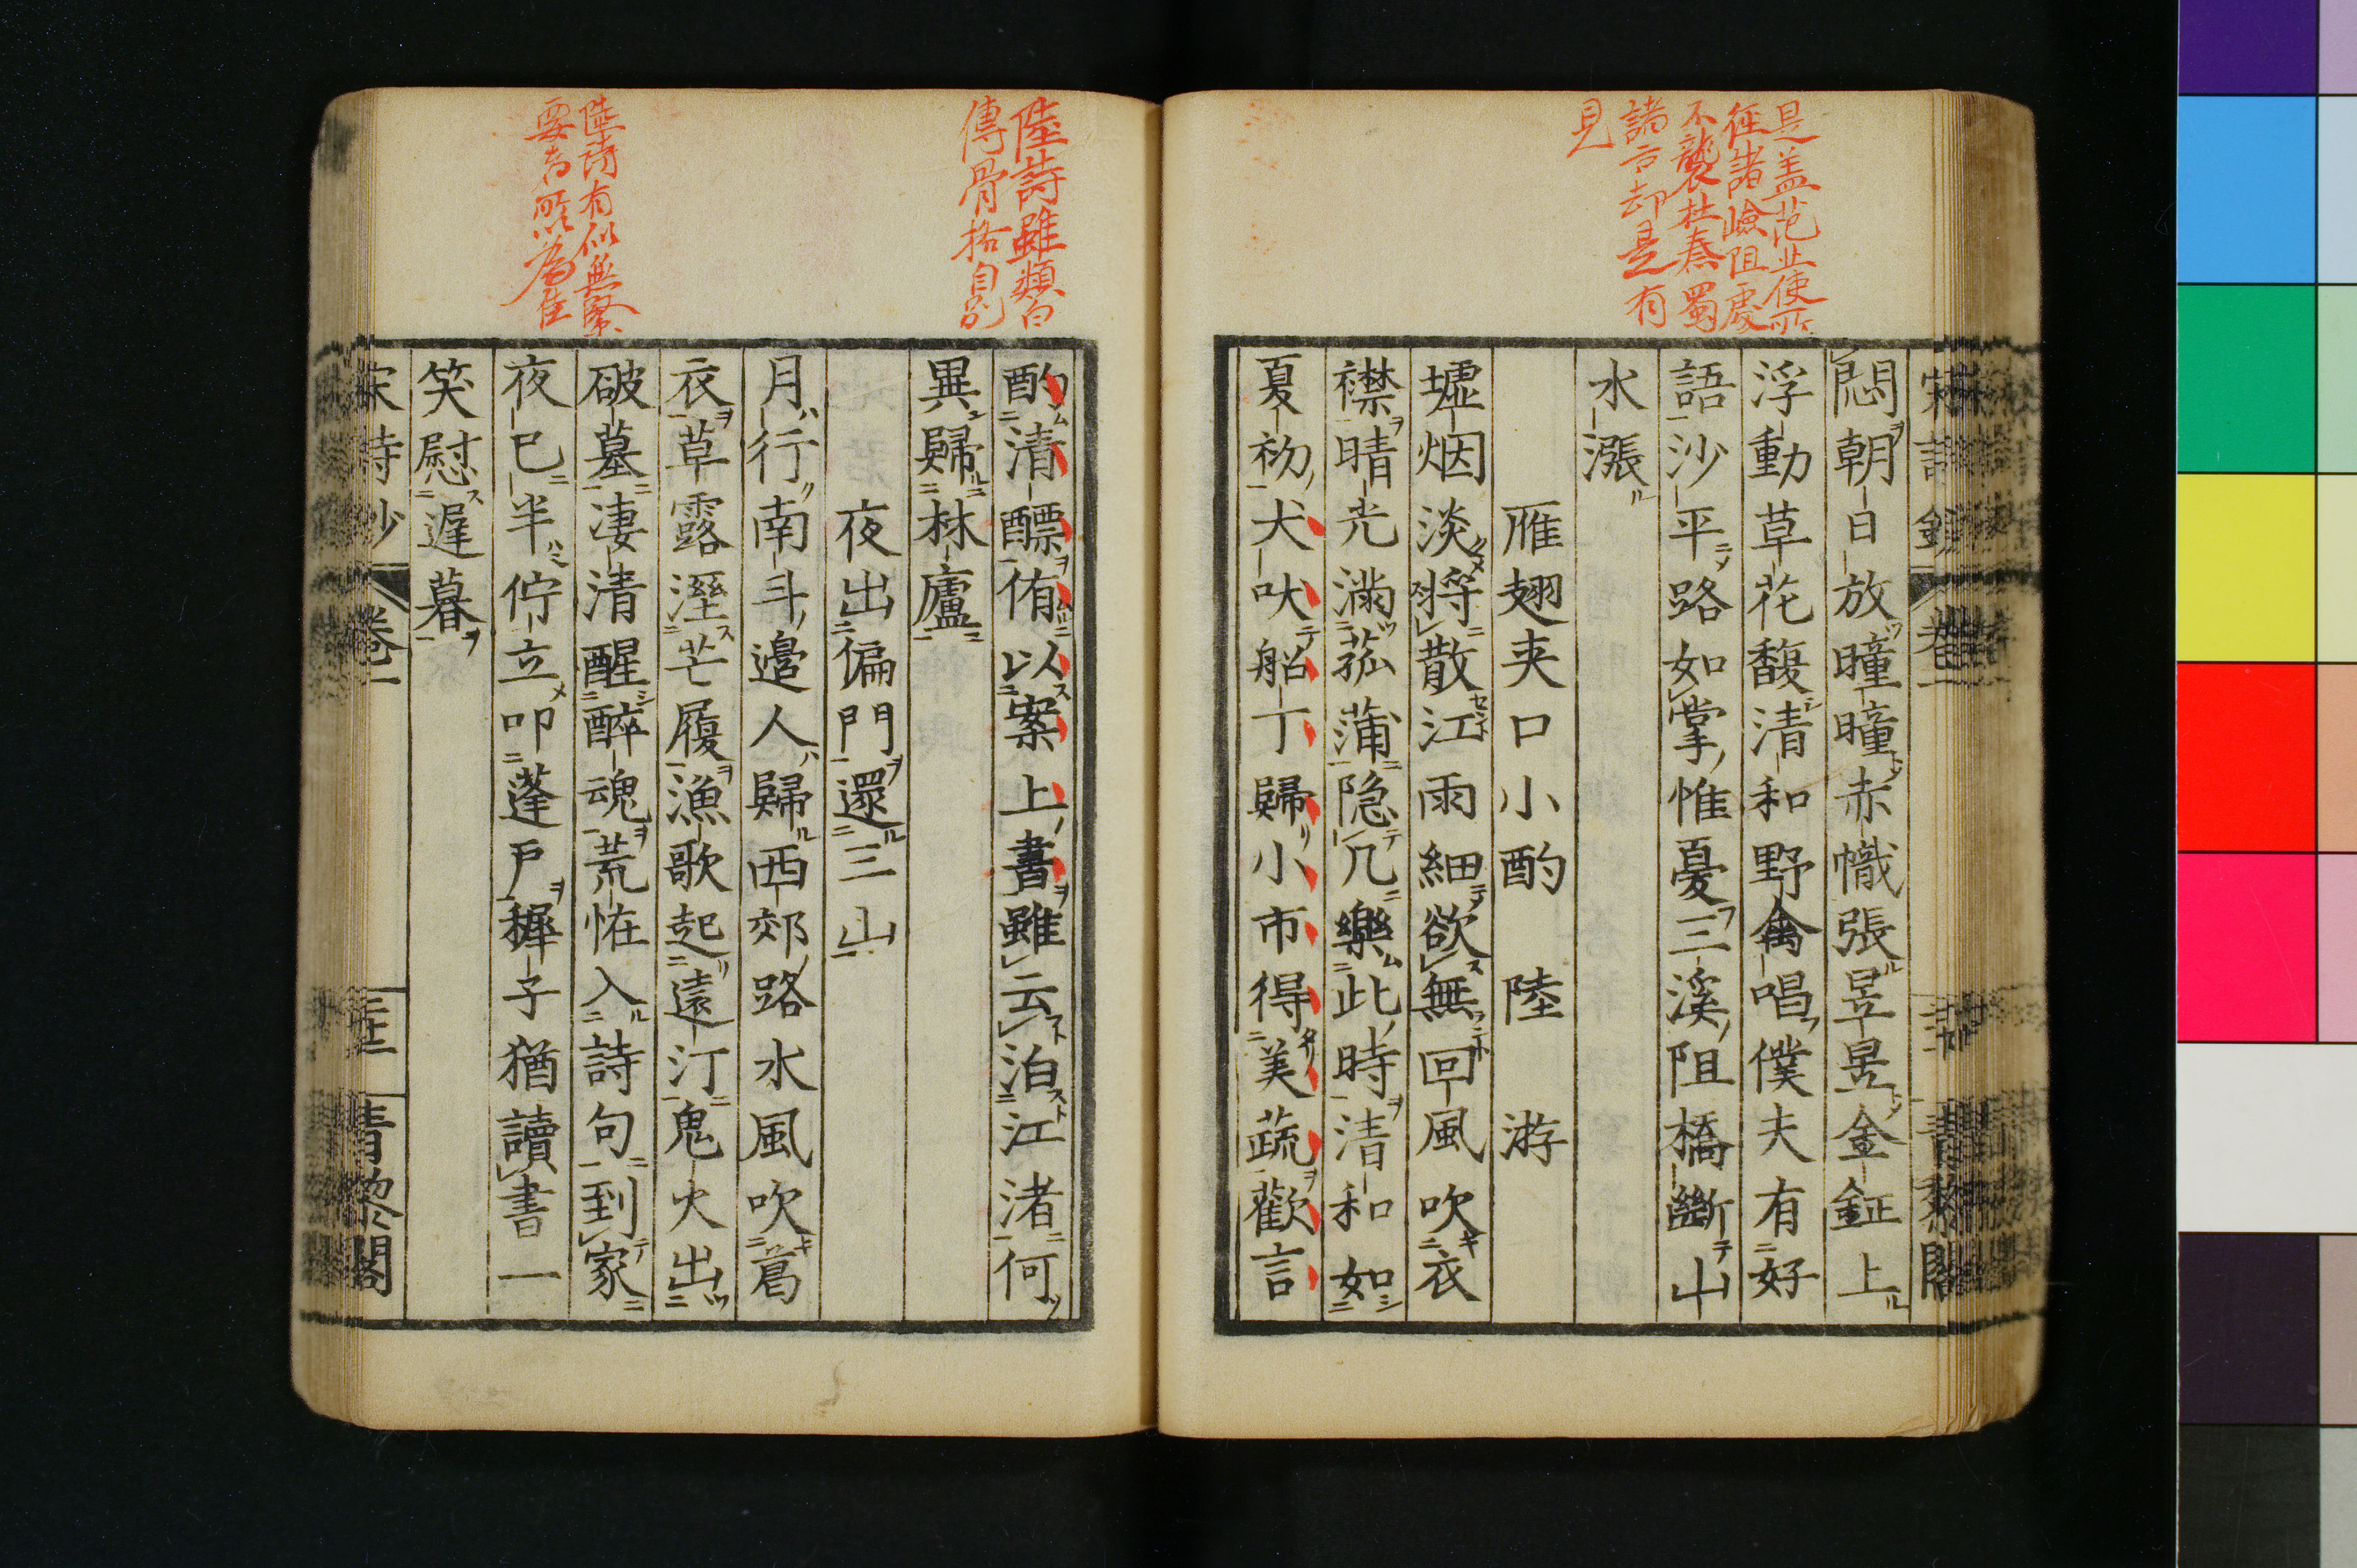 是盖范公使所
徑諸嶮阻處
不襲杜秦蜀
諸言却是有
見
悶朝日放曈曈赤幟張昱昱金鉦上
浮動草花馥清和野禽唱僕夫有好
語沙平路如掌惟憂三溪阻橋斷山
水漲
雁翅夹口小酌 陸游
墟烟淡將散江雨細欲無回風吹衣
襟晴光滿菰蒲隐几樂此時清和如
夏初犬吠船丁歸小市得美蔬歡言
陸詩雖類白
傳骨格自別
陸詩有似無緊
要者所以為佳
酌清醥侑以案上書雖云泊江渚何
異歸林廬
夜出偏門還三山
月行南斗邊人歸西郊路水風吹葛
衣草露溼芒履漁歌起遠汀鬼火出
破墓凄清醒醉魂荒怪入詩句到家
夜已半佇立叩蓬戶穉子猶讀書一
笑慰遲暮
宋詩鈔 卷一 青黎閣